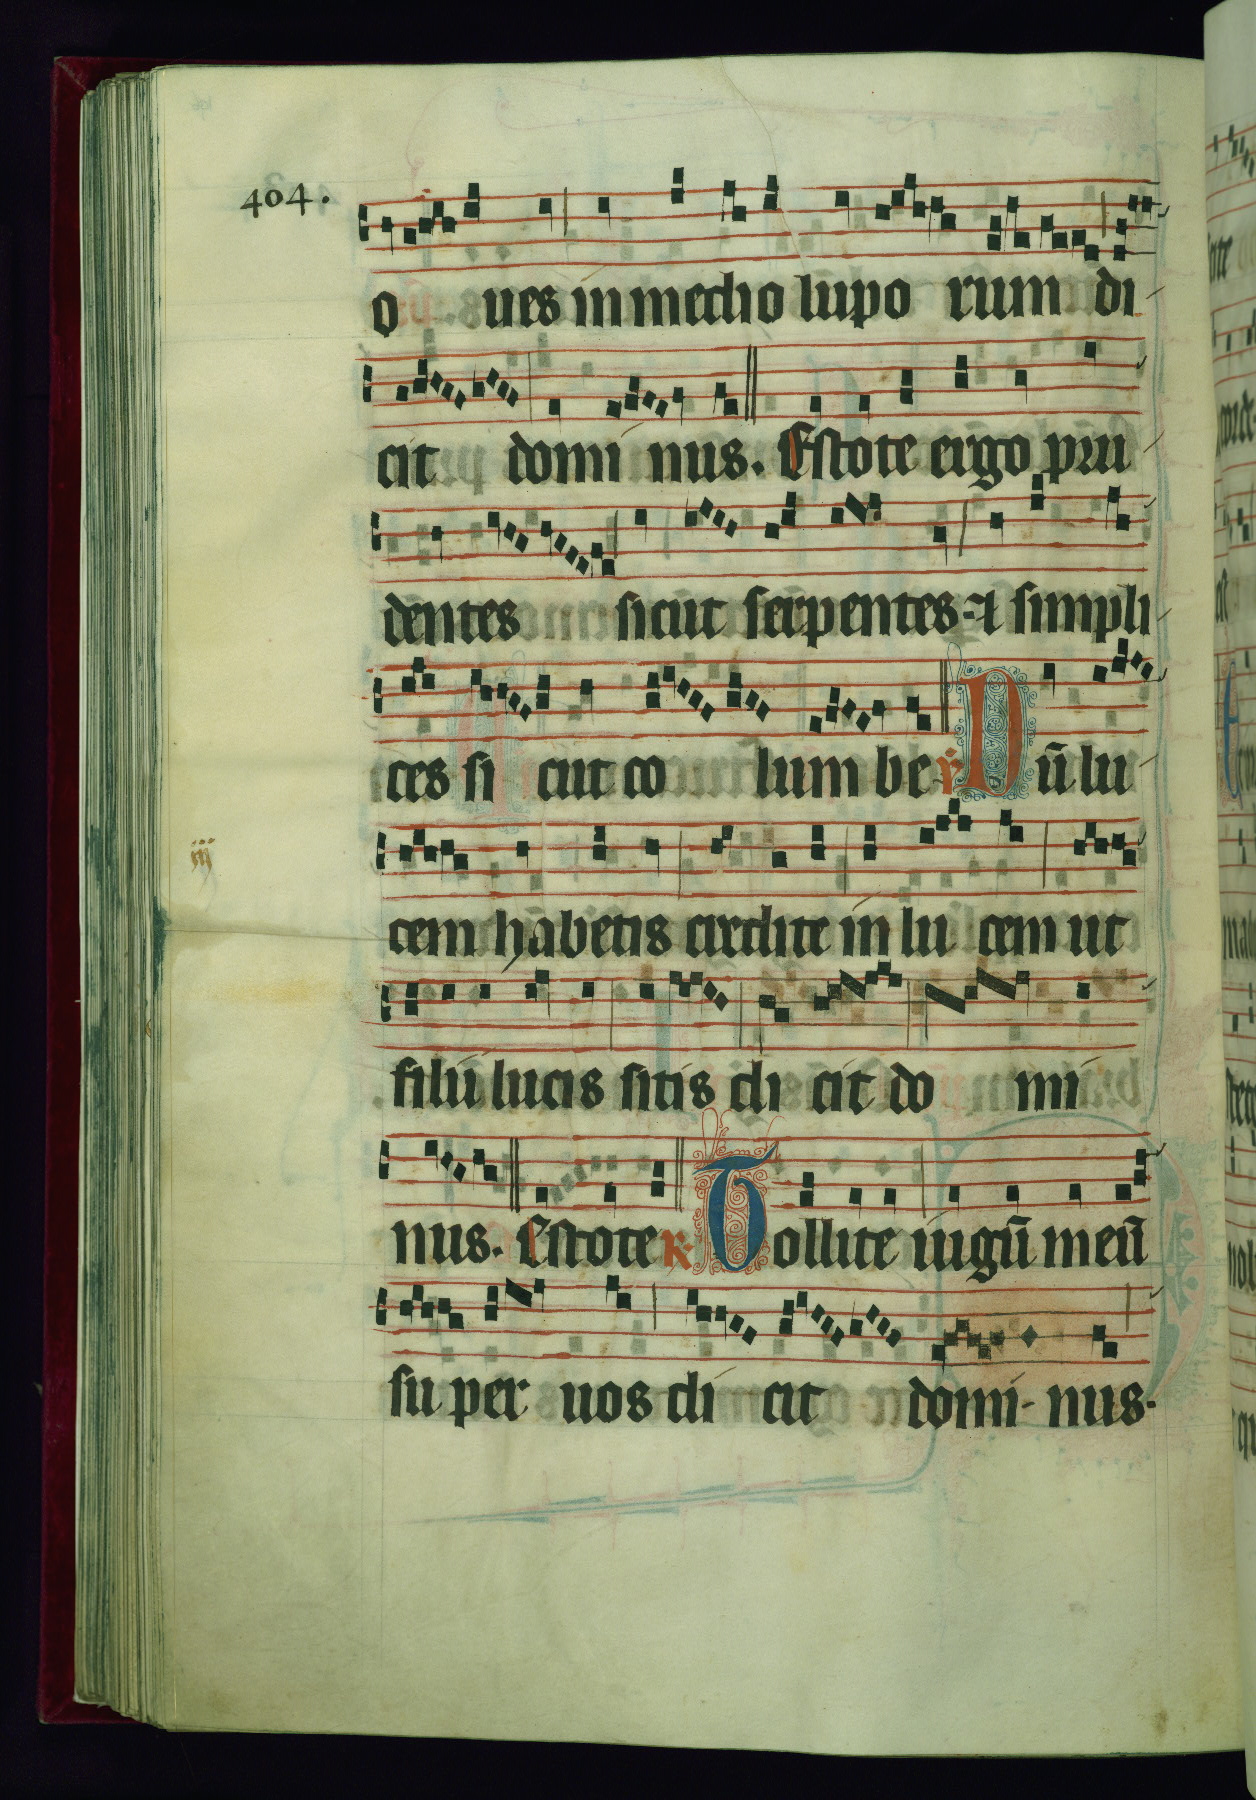 404.
o ues in medio lupo rum di
cit domi nus. Estote ergo pru
dentes sicut serpentes. et simpli
ces si cut co lum be ℣ Dū lu
iij
cem habetis credite in lu cem ut
filii lucis sitis di cit do mi
nus. Estote ℟ Tollite iugū meū
su per uos di cit domi nus.